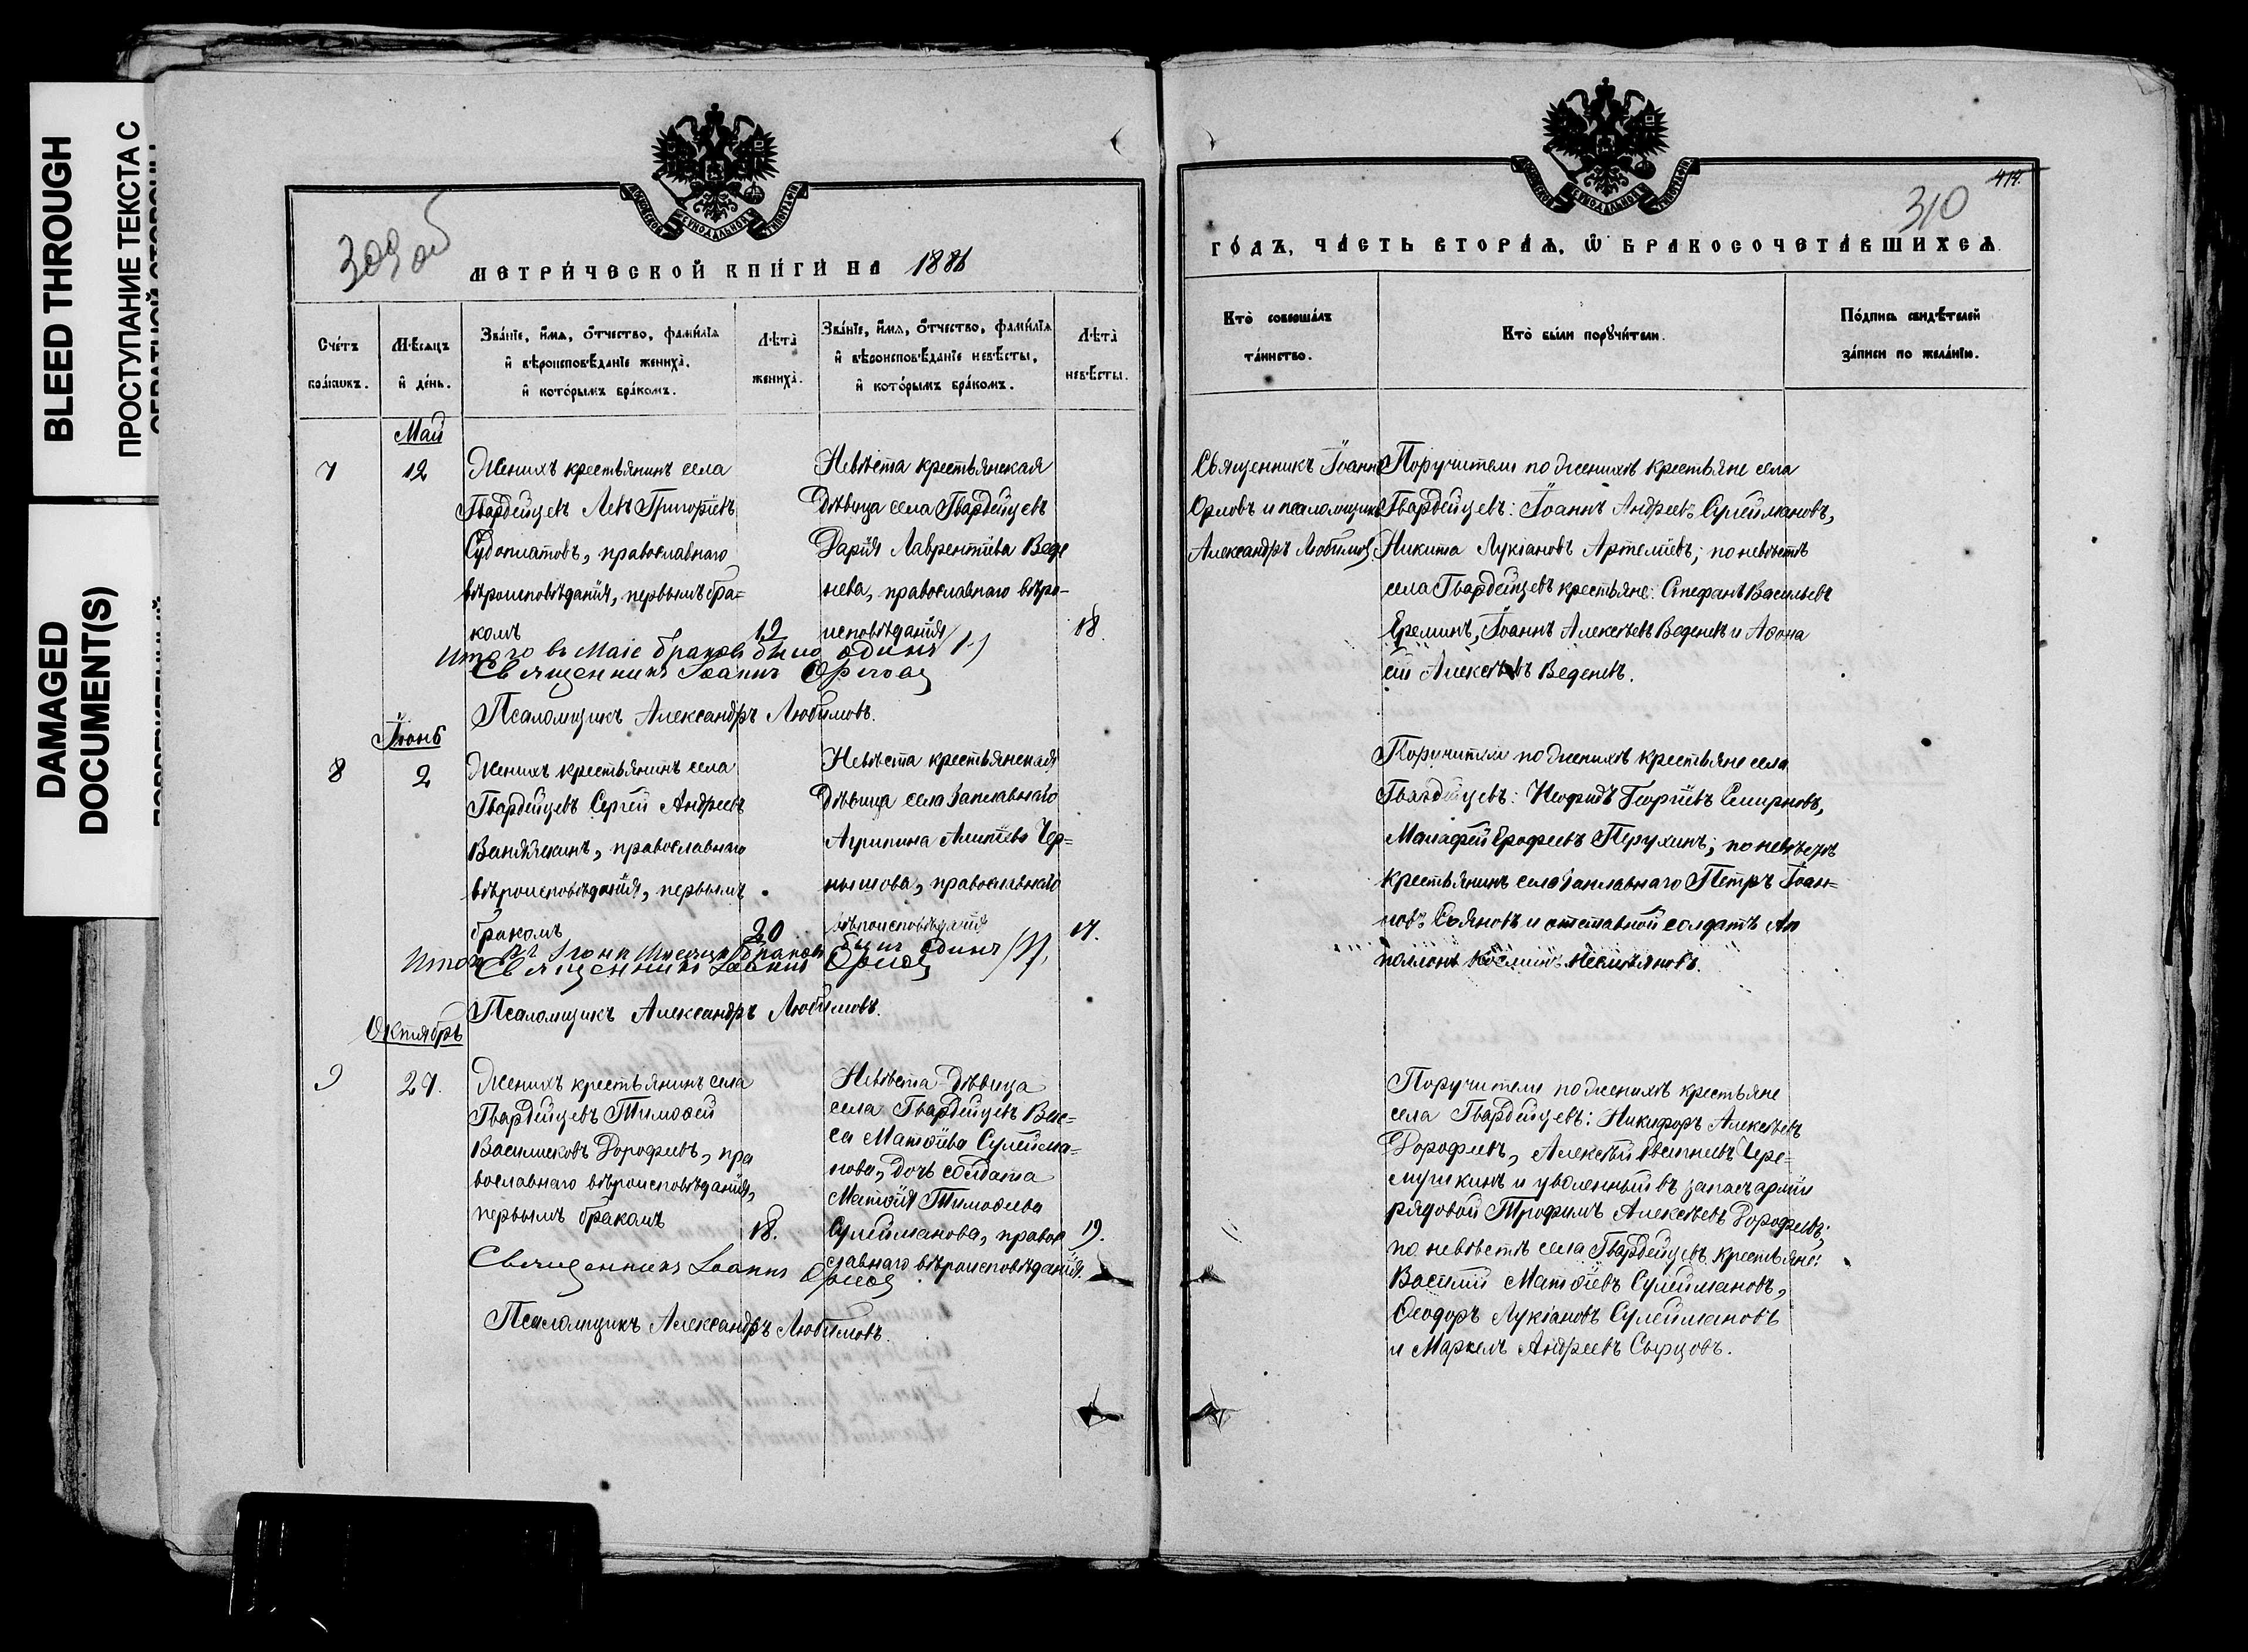 BLEED THROUGH
ПРОСТУПАНИЕ ТЕКСТА С
DAMAGED
DOCUMENT(S)
309 об
МЕТРИ́ЧЕСКОЙ КНИ́ГИ НА 1886
Сче́тъ
бра́ковъ.
Мѣсяцъ
и҆ де́нь.
Зва́нїе, и҆́мѧ, ѻ҆́тчество, фами́лїѧ
и҆ вѣроисповѣ́данїе жениха̀,
и҆ кото́рымъ бра́комъ.
Лѣта̀
жениха̀.
Зва́нїе, и҆́мѧ, ѻ҆́тчество, фами́лїѧ
и҆ вѣроисповѣ́данїе невѣ́сты,
и҆ кото́рымъ бра́комъ.
Лѣта̀
невѣ́сты.
Май
7
12
Женихъ крестьянинъ села
Гвардейцевъ Левъ Григорїевъ
Судоплатовъ, православнаго
вѣроисповѣданїя, первымъ бра=
комъ
19
Невѣста крестьянская
дѣвица села Гвардейцевъ
Дарїя Лаврентїева Веде
нева, православнаго вѣро-
исповѣданїя
18.
Итого въ Маіе браковъ было одинъ (1)
Священникъ Іоаннъ Орлов
Псаломщикъ Александръ Любимовъ.
Їюнь
8
2
Женихъ крестьянинъ села
Гвардейцевъ Сергей Андреевъ
православнаго
вѣроисповѣданїя, первымъ
бракомъ
20
Невѣста крестьянская
дѣвица села Заплавнаго
Агрипина Алипїева Чер=
нышова, православнаго
вѣроисповѣданїя
17.
Итого въ Іюни мѣсяцѣ браковъ былъ один (1).
Священникъ Іоаннъ Орлов
Псаломщикъ Александръ Любимовъ.
Октябрь
9
27.
Женихъ крестьянинъ села
Гвардейцевъ Тимоѳей
Василисковъ Дорофеевъ, пра
вославнаго вѣроисповѣданїя,
первымъ бракомъ
18.
Невѣста дѣвица
села Гвардейцевъ Вас=
са Матѳїева Сулейма=
нова, дочь солдата
Матѳїя Тимоѳеева
Сулейманова, правос
славнаго вѣроисповѣданїя.
19.
Священникъ Іоаннъ Орлов
Псаломщикъ Александръ Любимовъ.
414.
310
ГО́ДЪ, ЧА́СТЬ ВТОРА́Ѧ, Ѽ БРАКОСОЧЕТА́ВШИХСѦ.
Кто̀ соверша́лъ
та́инство.
Кто̀ бы́ли порꙋчи́тели.
По́дпись свидѣ́телей
за́писи по жела́нїю.
Священникъ Їоаннъ
Орловъ и псаломщикъ
Александръ Любимов.
Поручители по женихѣ крестьяне села
Гвардейцевъ: Їоаннъ Андреевъ Сулеймановъ,
Никита Лукїановъ Артемїевъ; по невѣстѣ
села Гвардейцевъ крестьяне: Стефанъ Васильевъ
Ереминъ, Їоаннъ Алексѣевъ Веденевъ и Аѳона
сїй Алексѣевъ Веденевъ.
Поручители по женихѣ крестьяне села
Гвардейцевъ: Неофидъ Георгїевъ Смирновъ,
Малафей Ерофеевъ Перухинъ; по невѣстѣ
крестьянинъ села Заплавнаго Петръ Їоан=
новъ Сояновъ и отставной солдатъ Ап
поллонъ
Поручители по женихѣ крестьяне
села Гвардейцевъ: Никифоръ Алексѣевъ
Дорофеевъ, Алексѣй Евстигнѣевъ Чере=
мушкинъ и уволенный въ запасъ армїи
рядовой Трофимъ Алексѣевъ Дорофеевъ;
по невѣстѣ села Гвардейцевъ крестьяне:
Василїй Матѳїевъ Сулеймановъ,
Ѳеодоръ Лукїановъ Сулеймановъ
и Маркелъ Андреевъ Сырцовъ.